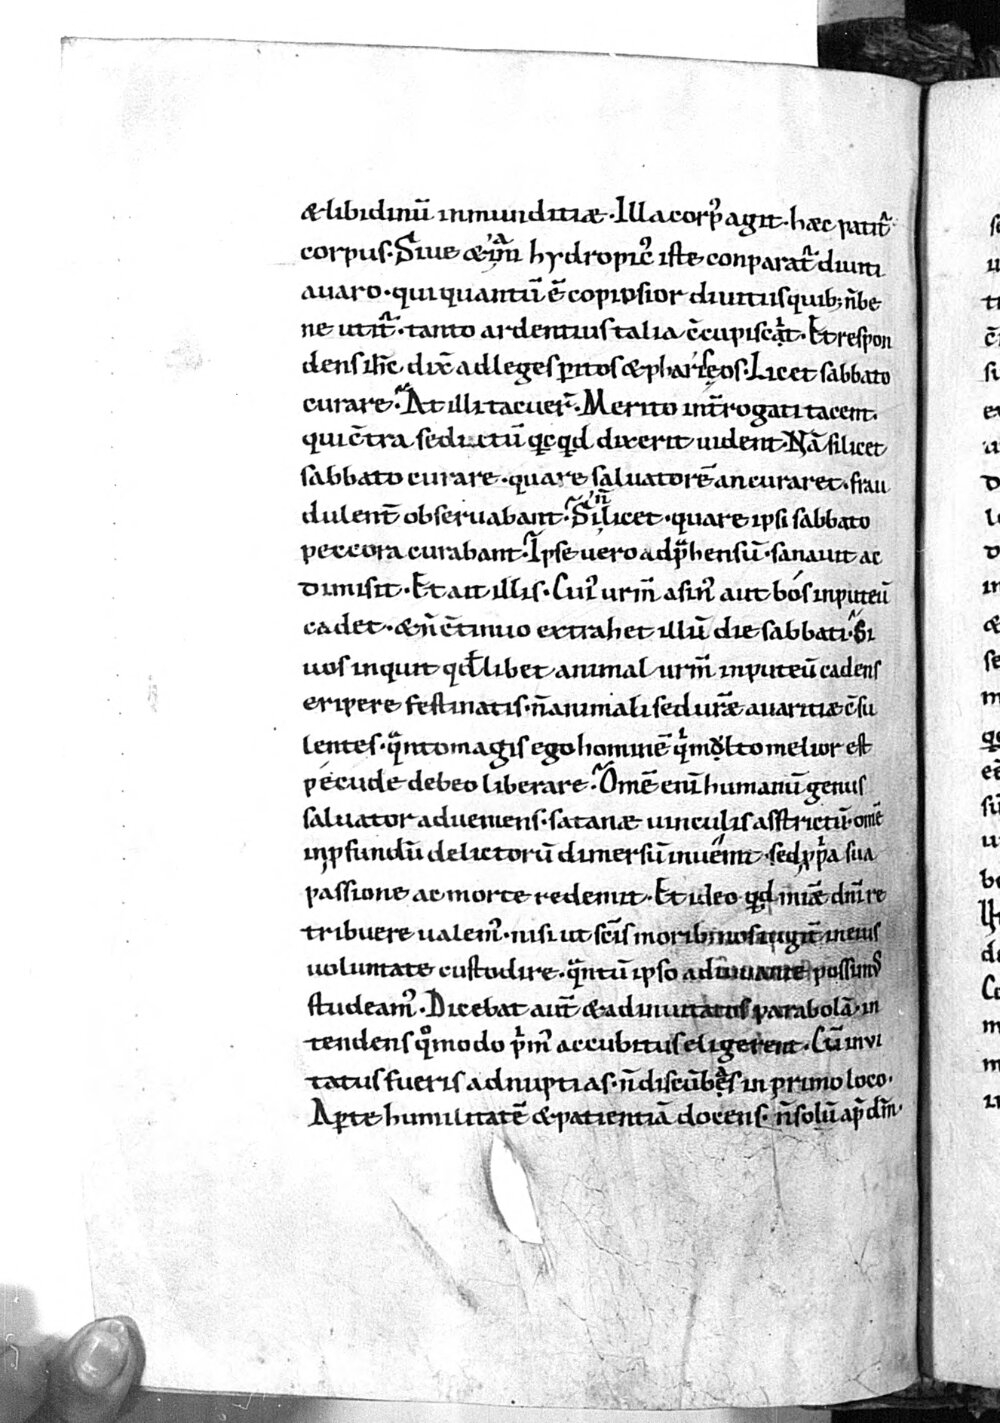 & libidinū inmunditiæ · Illa corpꝰ agit · hæc patit᷑
corpus · Siue &iā hydropicꝰ iste conparat᷑ diuiti
auaro · qui quantū ē copiosior diuitiis quibꝫ n̄ be
ne utit᷑ · tanto ardentius talia c̄cupiscat · Et respon
dens ih̄c dix̄ ad legesperitos & phariseos · Licet sabbato
curare · At illi tacuer̄ · Merito int̄rogati tacent ·
qui c̄tra se dictū qcqd dixerit uident · Nā si licet
sabbato curare · quare saluatorē an curaret · frau
dulent̄ obseruabant · Si n̄ licet · quare ipsi sabbato
peccora curabant · Ipse uero adp̄hensū · sanauit ac
dimisit · Et ait illis · Cuiꝰ urm̄ asinꝰ aut bós inputeū
cadet · & n̄ c̄tinuo extrahet illū die sabbati · Si
uos inquit qdlibet animal urm̄ inputeū cadens
eripere festinatis · n̄ animali sed urǣ auaritiæ c̄su
lentes · qnto magis ego hominē qi mꝉto melior est
pécude debeo liberare · Omē enī humanū genus
saluator adueniens · satanæ uinculis asstrictū · omē
inꝓfundū delictorū dimersū inuénit · sed ꝓp̄a sua
passione ac morte redemit · Et ideo qd miǣ dnī re
tribuere ualemꝰ · nisi ut sc̄is moribꝰ nos iugit᷑ in eius
uoluntate custodire · qntū ipso adiuuante possimꝰ
studeamꝰ · Dicebat aut̄ & ad inuitatos parabolā · in
tendens qomodo p̄mꝰ accubitus eligerent · Cū invi
tatus fueris ad nuptias · n̄ discūbes in primo loco ·
Aperte humilitatē & patientiā docens · n̄ solū ap̄ dm̄ ·